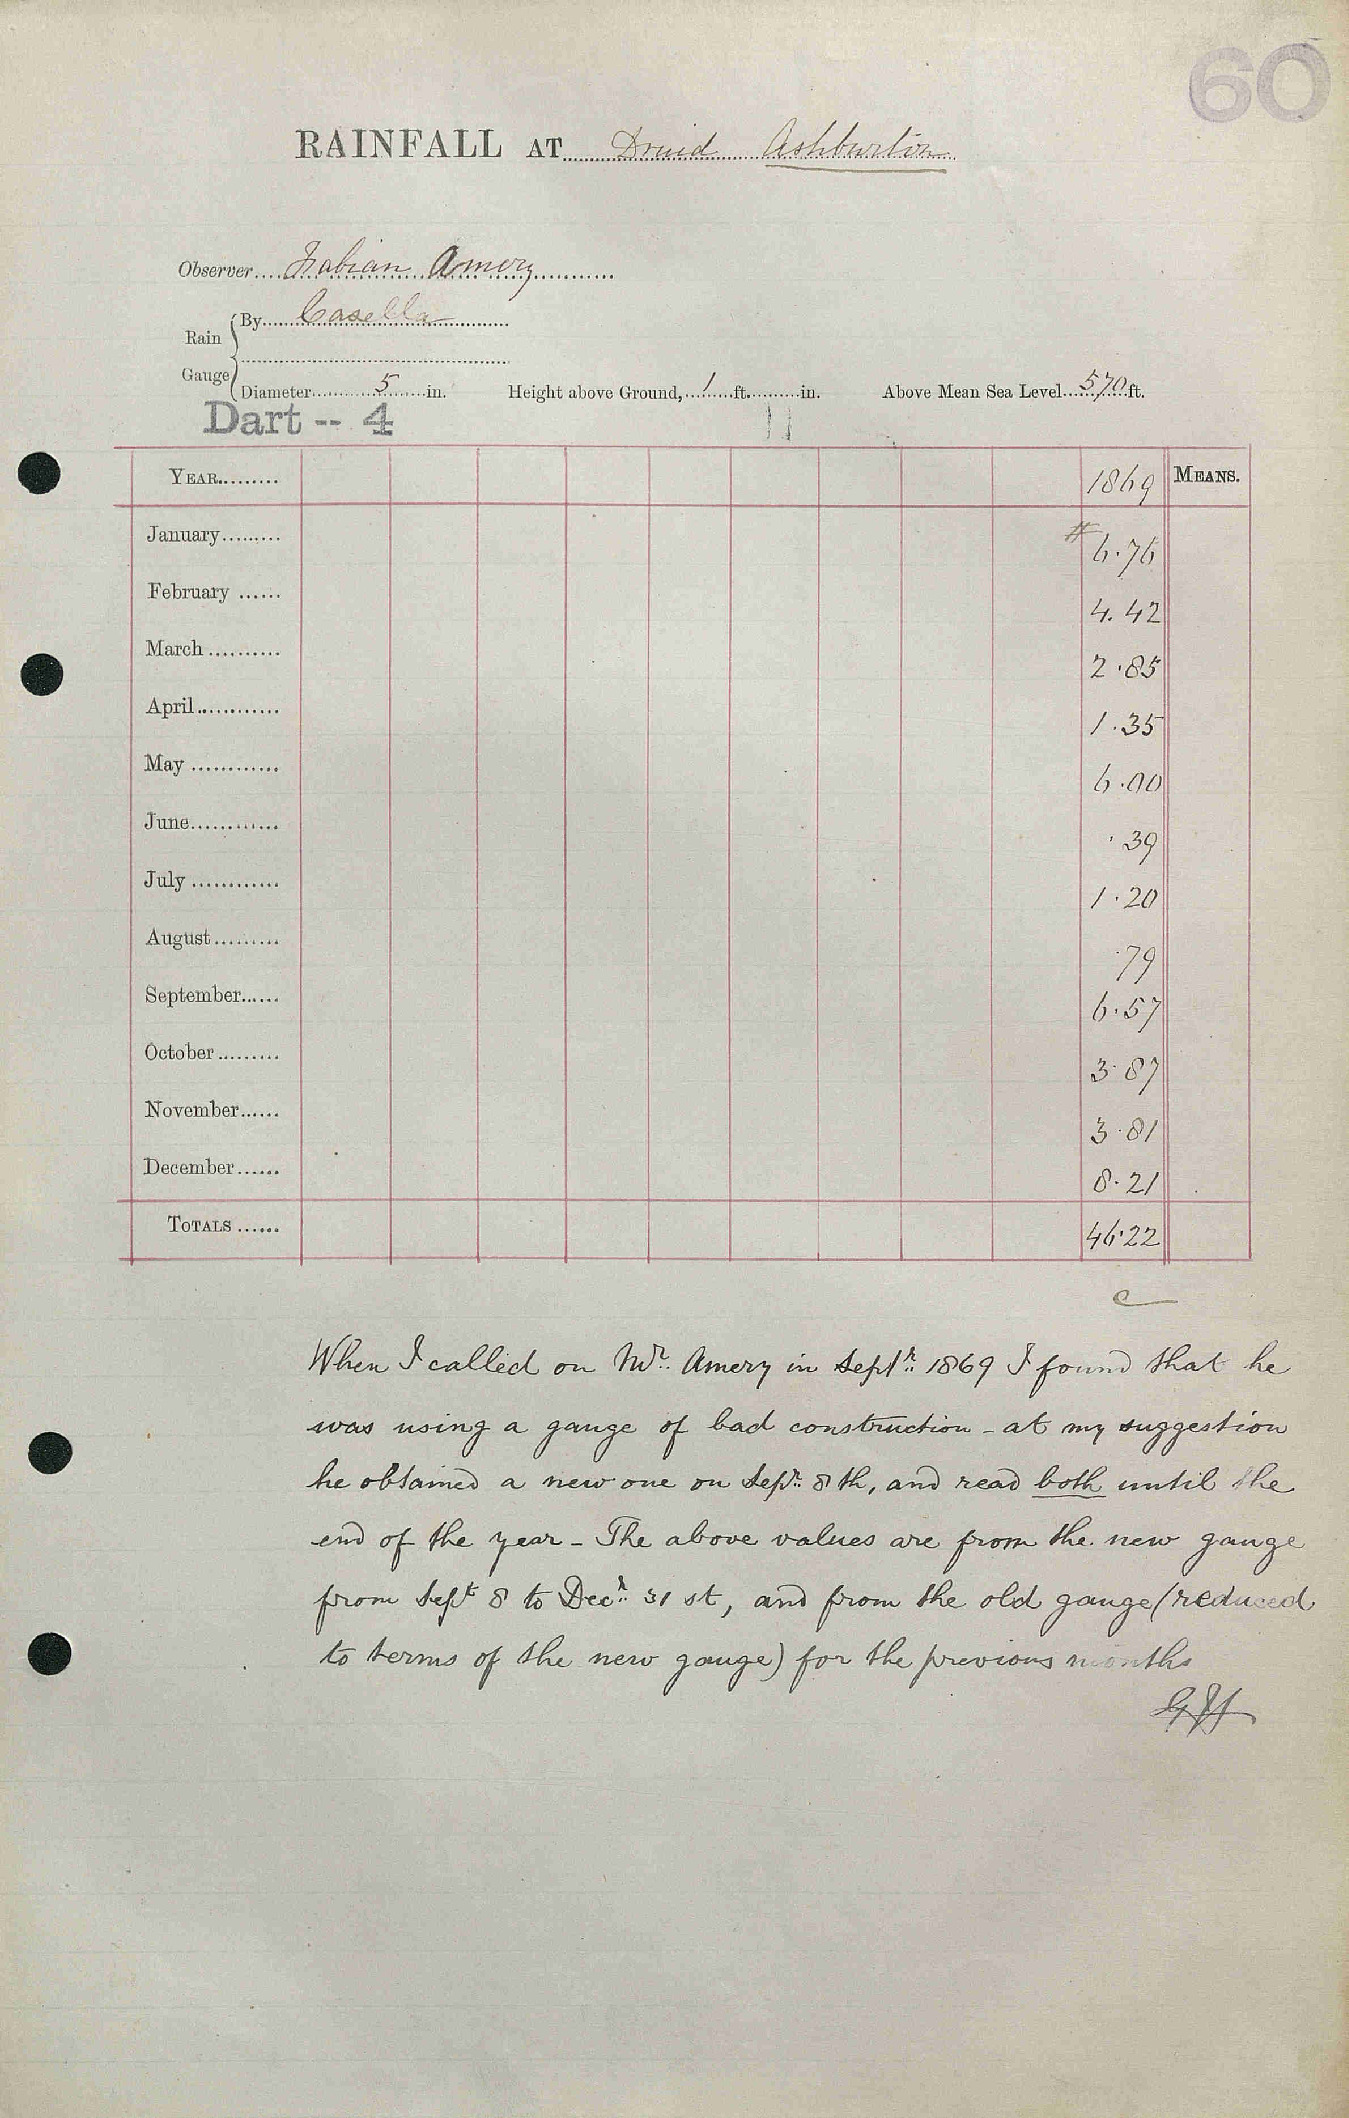 60
RAINFALL AT Druid Ashburton
Observer Fabian Amery
Rain Gauge
By Casella
Diameter 5 in. Height above Ground, 1 ft. in. Above Mean Sea Level 570 ft.
Dart -- 4
YEAR 1869 MEANS.
January # 6.76
February 4.42
March 2.85
April 1.35
May 6.00
June .39
July 1.20
August .79
September 6.57
October 3.87
November 3.81
December 8.21
TOTALS 46.22
c
When I called on Mr. Amery in Septr. 1869 I found that he
was using a gauge of bad construction - at my suggestion
he obtained a new one on Sepr. 8th, and read both until the
end of the year - The above values are from the new gauge
from Sept 8 to Decr. 31st, and from the old gauge (reduced
to terms of the new gauge) for the previous months